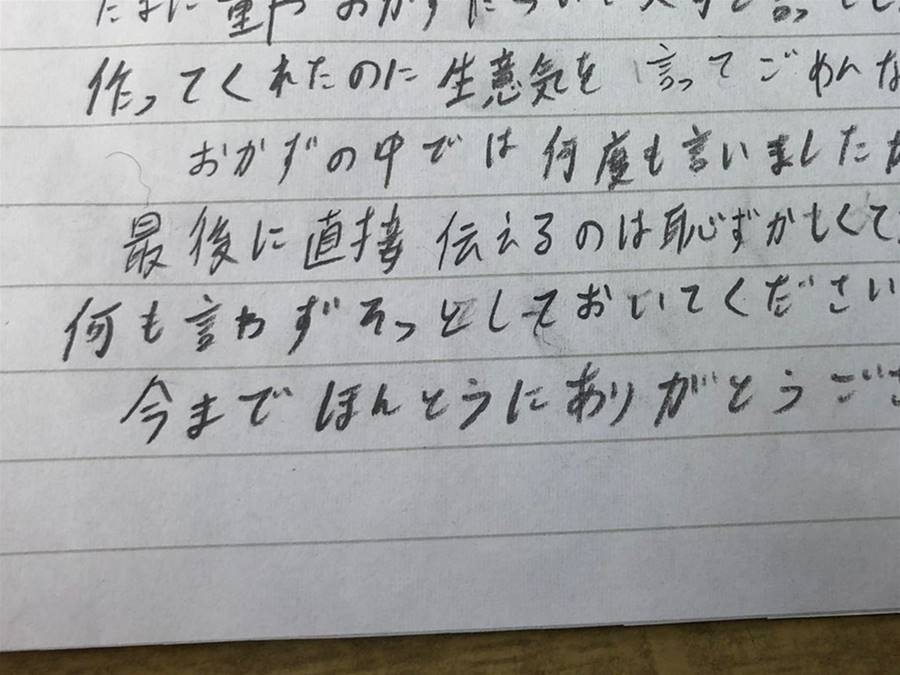 たまに
作ってくれたのに生意気を言ってごめんな
おかずの中では何度も言いましたが
最後に直接伝えるのは恥ずかもくて
何も言わずそっとしておいてください
今までほんとうにありがとうござ